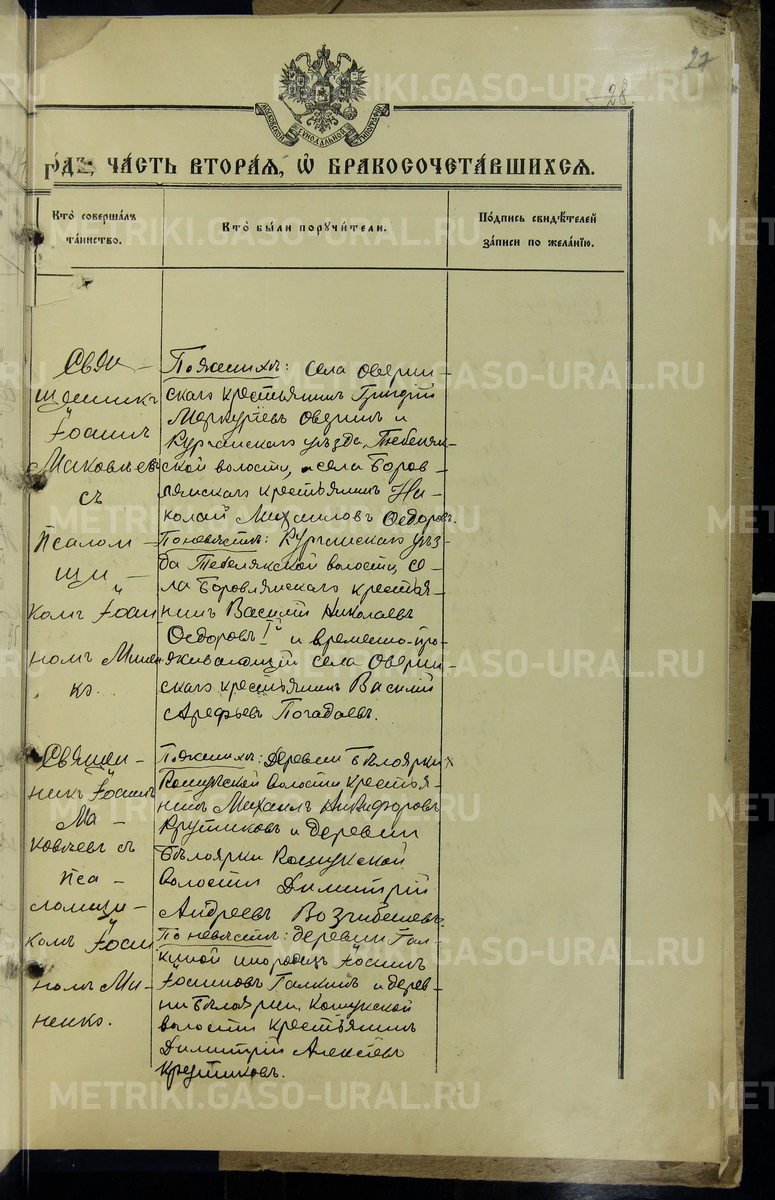 27
28.
МОСКОВСКОЙ СѴНОДАЛЬНОЙ ТѴПОГРАФІИ
ГО́ДЪ, ЧА́СТЬ ВТОРА́Я, Ѽ БРАКОСОЧЕТА́ВШИХСЯ.
Кто̀ соверша́лъ
та́инство.
Кто̀ бы́ли поручи́тели.
По́дпись свидѣ́телей
за́писи по жела́нїю.
Свя-
щенникъ
Іоаннъ
Маковѣевъ
съ
Псалом-
щи-
комъ Іоан
номъ Минен
ко.
По женихѣ: села Оверин-
скаго крестьянинъ Григорій
Меркурьевъ Оверинъ и
Курганскаго уѣзда, Тебеняк-
ской волости, села Боров-
лянскаго крестьянинъ Ни-
колай Михаиловъ Ѳедоровъ.
По невѣстѣ: Курганскаго уѣз-
да Тебенякской волости, се-
ла Боровлянскаго крестья-
нинъ Василій Николаевъ
Ѳедоровъ Iй и временно-про-
живающій села Оверин-
скаго крестьянинъ Василій
Арефьевъ Погадаевъ.
Священ-
никъ Іоаннъ
Ма-
ковѣевъ съ
Пса-
ломщи-
комъ Іоан
номъ Ми-
ненко.
По женихѣ: деревни Бѣлоярки
Кошукской волости крестья-
нинъ Михаилъ Никифоровъ
Крутиковъ и деревни
Бѣлоярки Кошукской
волости Димитрій
Андреевъ
По невѣстѣ: деревни Гал-
киной инородецъ Іоаннъ
Іоанновъ Галкинъ и дерев-
ни Бѣлоярки Кошукской
волости крестьянинъ
Димитрій Алексѣевъ
Крутиковъ.
METRIKI.GASO-URAL.RU